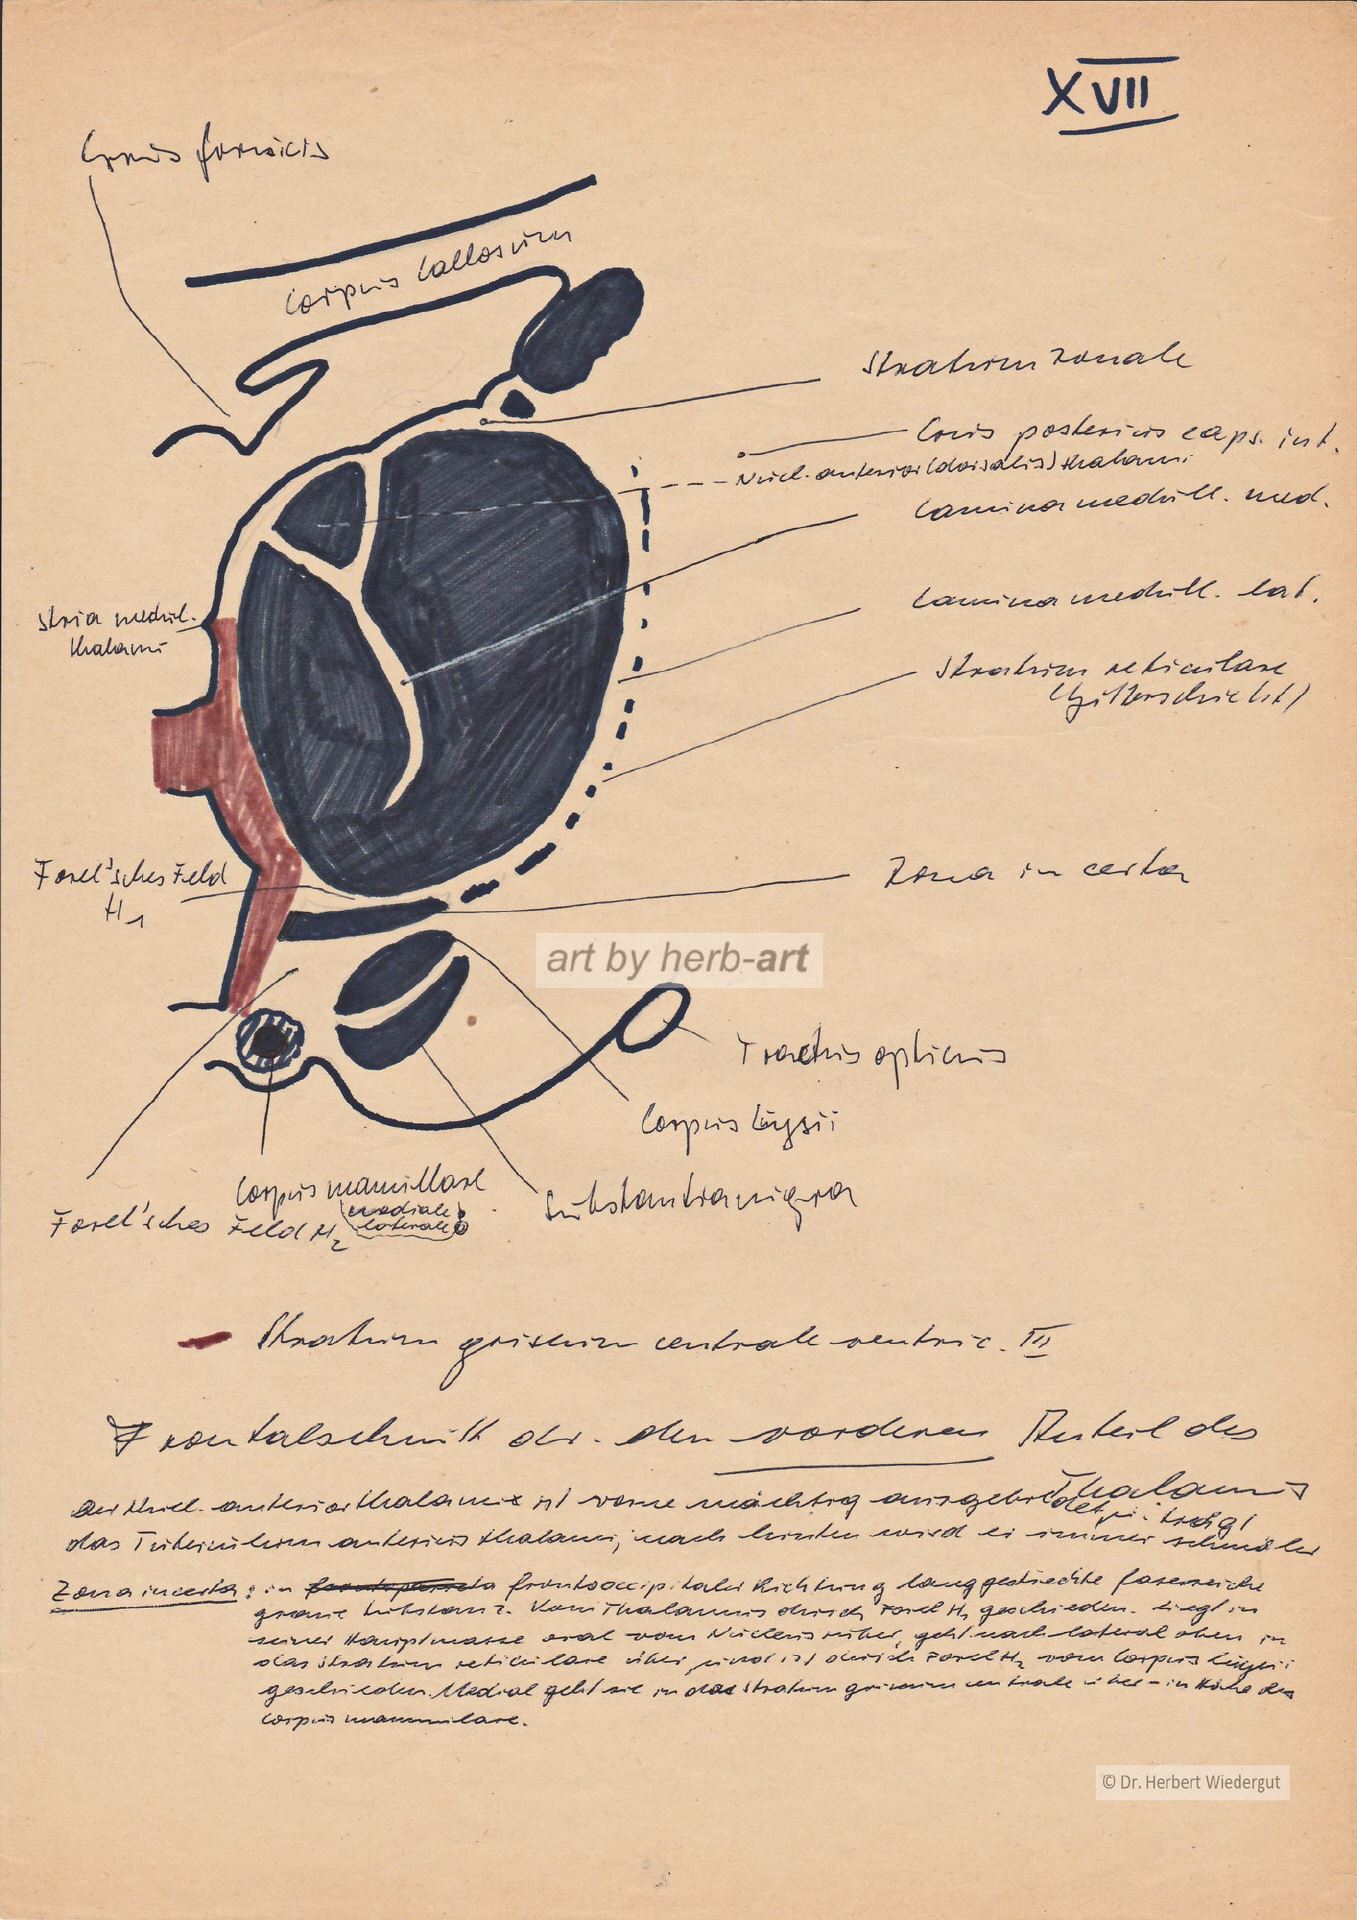 XVII
Crus fornicis
Corpus Callosum
Stratum zonale
Crus posterius caps. int.
Nucl. anterior (dorsalis) thalami
Lamina medull. med.
Lamina medull. lat.
Stria medul.
thalami
Stratum reticulare
(Gitterschicht)
Forel'sches Feld
H1
Zona incerta
art by herb-art
Tractus opticus
Corpus Luysii
Substantia nigra
Corpus mamillare
(mediale
laterale)
Forel'sches Feld H2
Stratum griseum centrale ventric. III
Frontalschnitt dr. den vorderen Anteil des
Thalamus
Der Nucl. anterior thalami ist vorne mächtig ausgebildet, u. trägt
das Tuberculum anterius thalami, nach hinten wird er immer schmäler
Zona incerta: in frontooccipitaler Richtung langgestreckte faserreiche
graue Substanz. Vom Thalamus durch Forel H1 geschieden. Liegt in
seiner Hauptmasse oral vom Nucleus ruber, geht nach lateral oben in
das Stratum reticulare über, und ist durch Forel H2 vom Corpus Luysii
geschieden. Medial geht sie in das Stratum griseum centrale über - in Höhe des
Corpus mammilare.
© Dr. Herbert Wiedergut